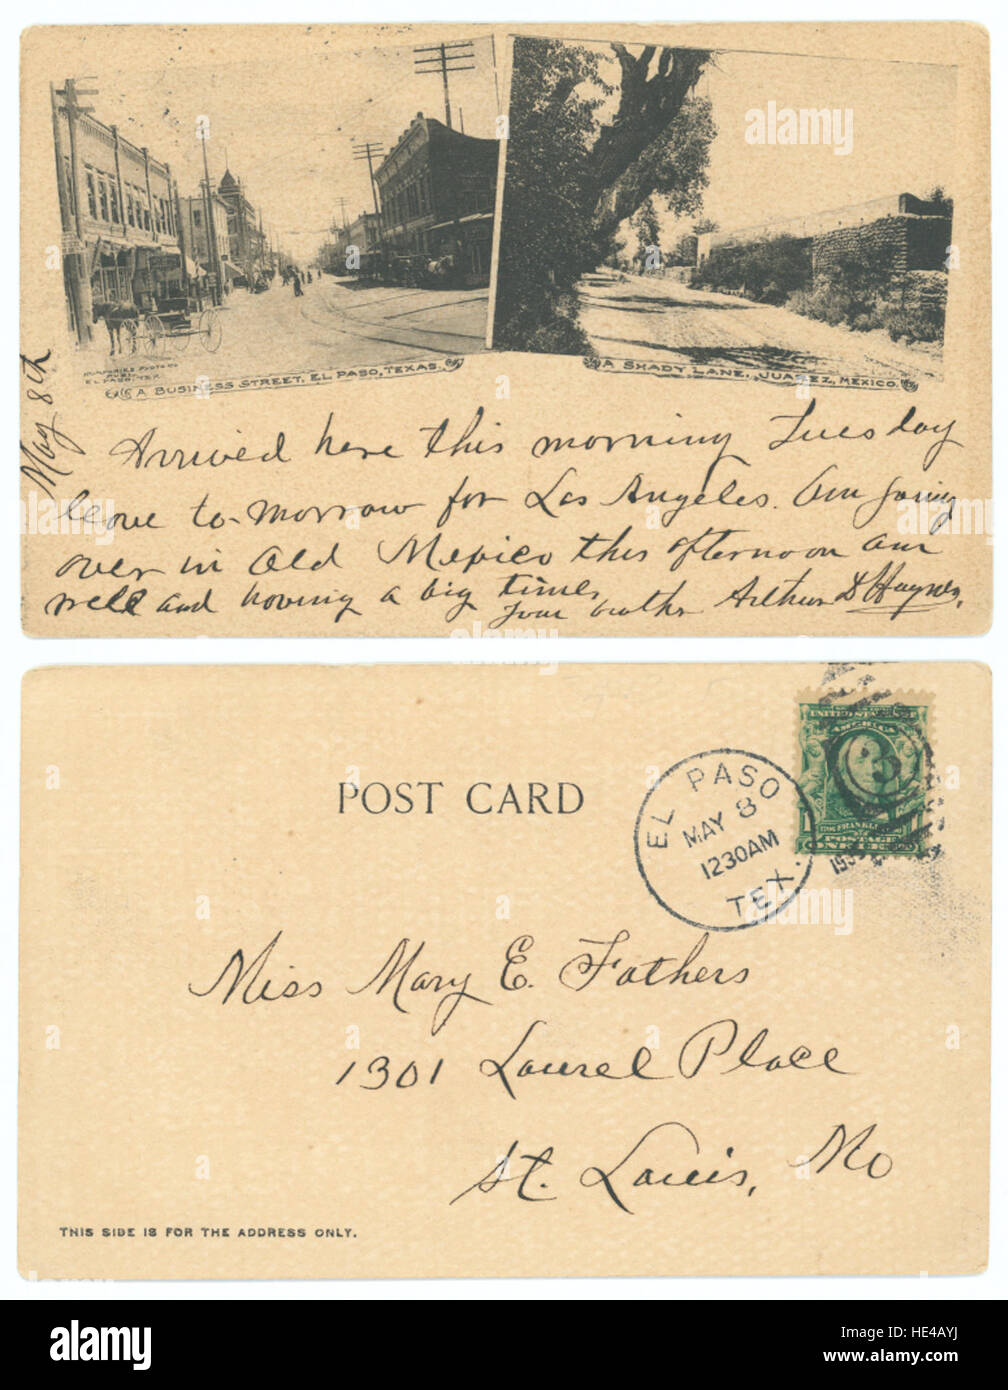 HUMPHRIES PHOTO CO
PUBL.
EL PASO, TEX.
A BUSINESS STREET, EL PASO, TEXAS.
A SHADY LANE, JUAREZ, MEXICO.
May 8th
Arrived here this morning Tuesday
leave to-morrow for Los Angeles. Am going
over in Old Mexico this afternoon am
well and having a big time,
Your brother Arthur D Haynes.
POST CARD
EL PASO
MAY 8
1230AM
TEX.
UNITED STATES OF
AMERICA
3
1 1706 FRANKLIN 1
POSTAGE
ONE CENT
Miss Mary E. Fathers
1301 Laurel Place
St. Louis, Mo
THIS SIDE IS FOR THE ADDRESS ONLY.
alamy
Image ID: HE4AYJ
www.alamy.com